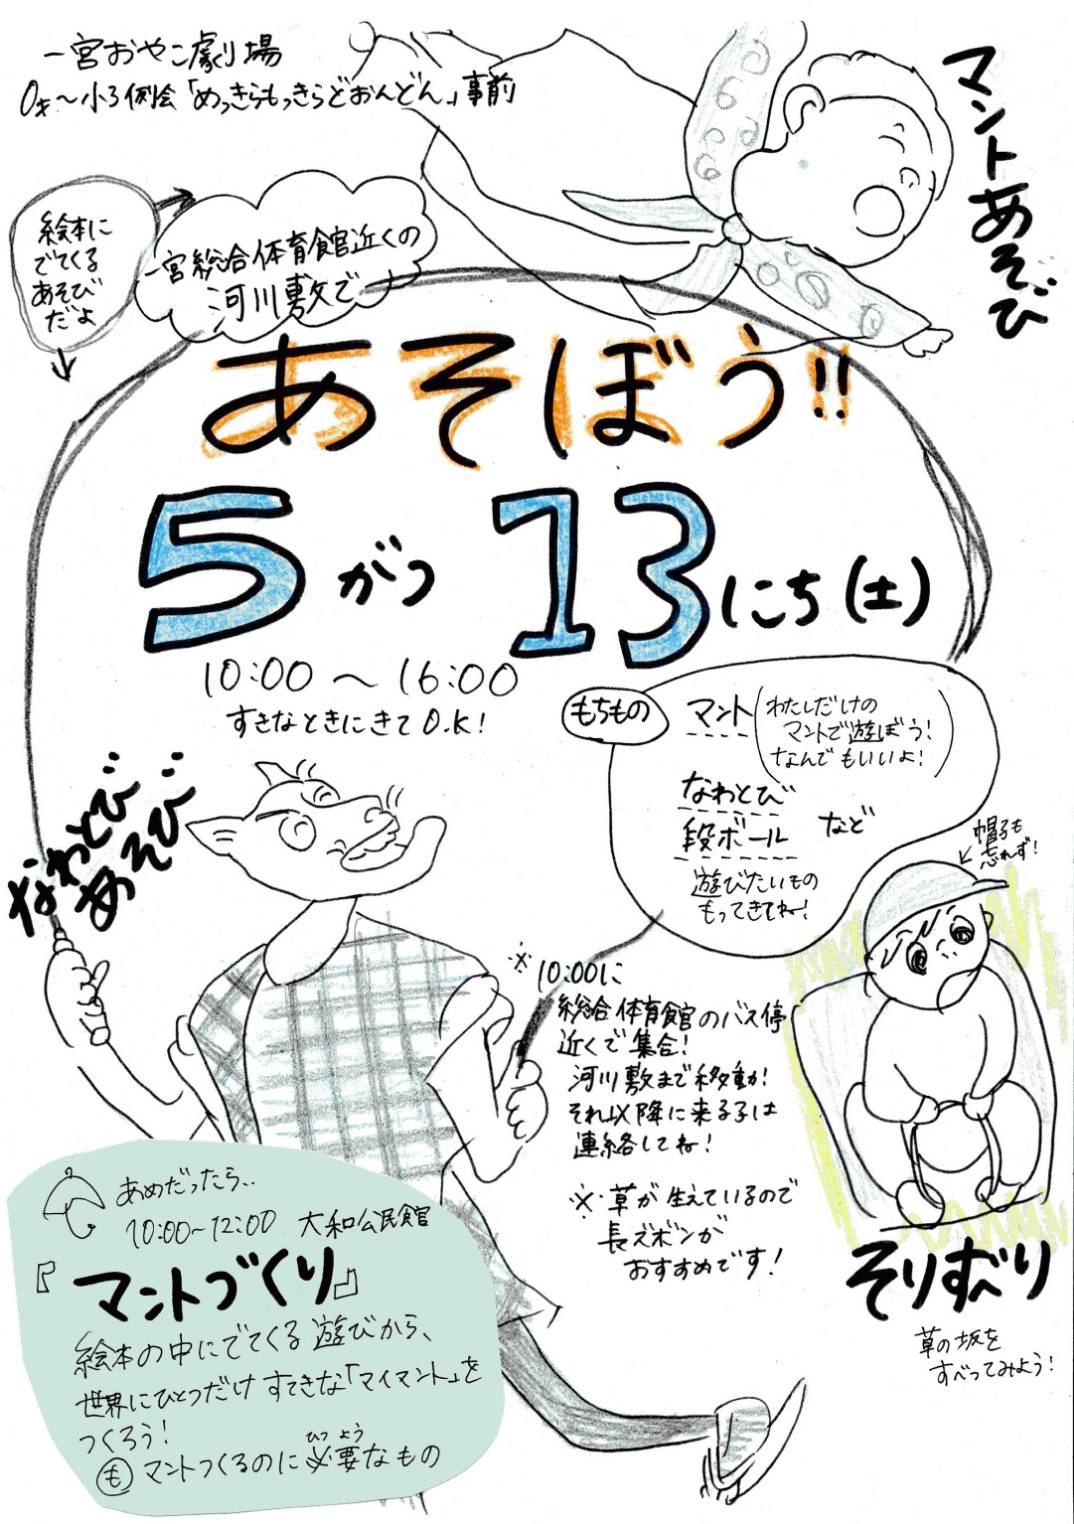 一宮おやこ劇場
0才〜小3例会「めっきらもっきらどおんどん」事前
マントあそび
絵本に
でてくる
あそび
だよ
一宮総合体育館近くの
河川敷で
あそぼう!!
5がつ13にち(土)
10:00〜16:00
すきなときにきてO.K!
もちもの
マント(わたしだけの
マントで遊ぼう!
なんでもいいよ!)
なわとび
段ボール など
遊びたいもの
もってきてね!
帽子も
忘れず!
なわとび
あそび
※10:00に
総合体育館のバス停
近くで集合!
河川敷まで移動!
それ以降に来る子は
連絡してね!
※草が生えているので
長ズボンが
おすすめです!
そりすべり
草の坂を
すべってみよう!
あめだったら..
10:00~12:00 大和公民館
『マントづくり』
絵本の中にでてくる遊びから、
世界にひとつだけすてきな「マイマント」を
つくろう!
ひつ よう
も マントつくるのに必要なもの